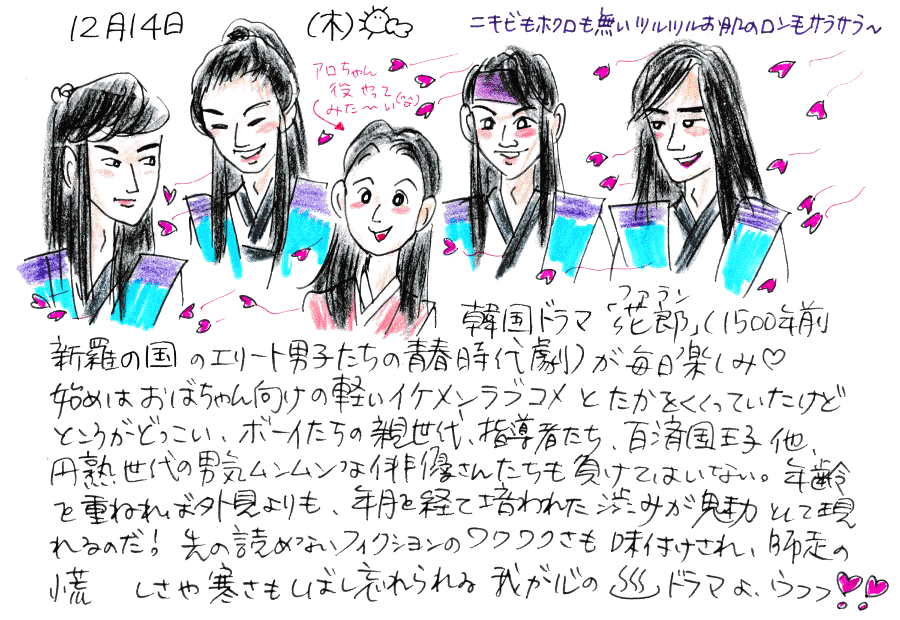 12月14日 (木)
ニキビもホクロも無いツルツルお肌のロン毛サラサラ〜
アロちゃん
役やって
みた〜い
ファラン
韓国ドラマ「花郎」(1500年前
新羅の国のエリート男子たちの青春時代劇)が毎日楽しみ♡
始めはおばちゃん向けの軽いイケメンラブコメとたかをくくっていたけど
ところがどっこい、ボーイたちの親世代、指導者たち、百済国王子他、
円熟世代の男気ムンムンな俳優さんたちも負けてはいない。年齢
を重ねれば外見よりも、年月を経て培われた渋みが魅力として現
れるのだ!先の読めないフィクションのワクワクさも味付けされ、師走の
慌 しさや寒さもしばし忘れられる我が心の♨ドラマよ、ウフフ♥♥